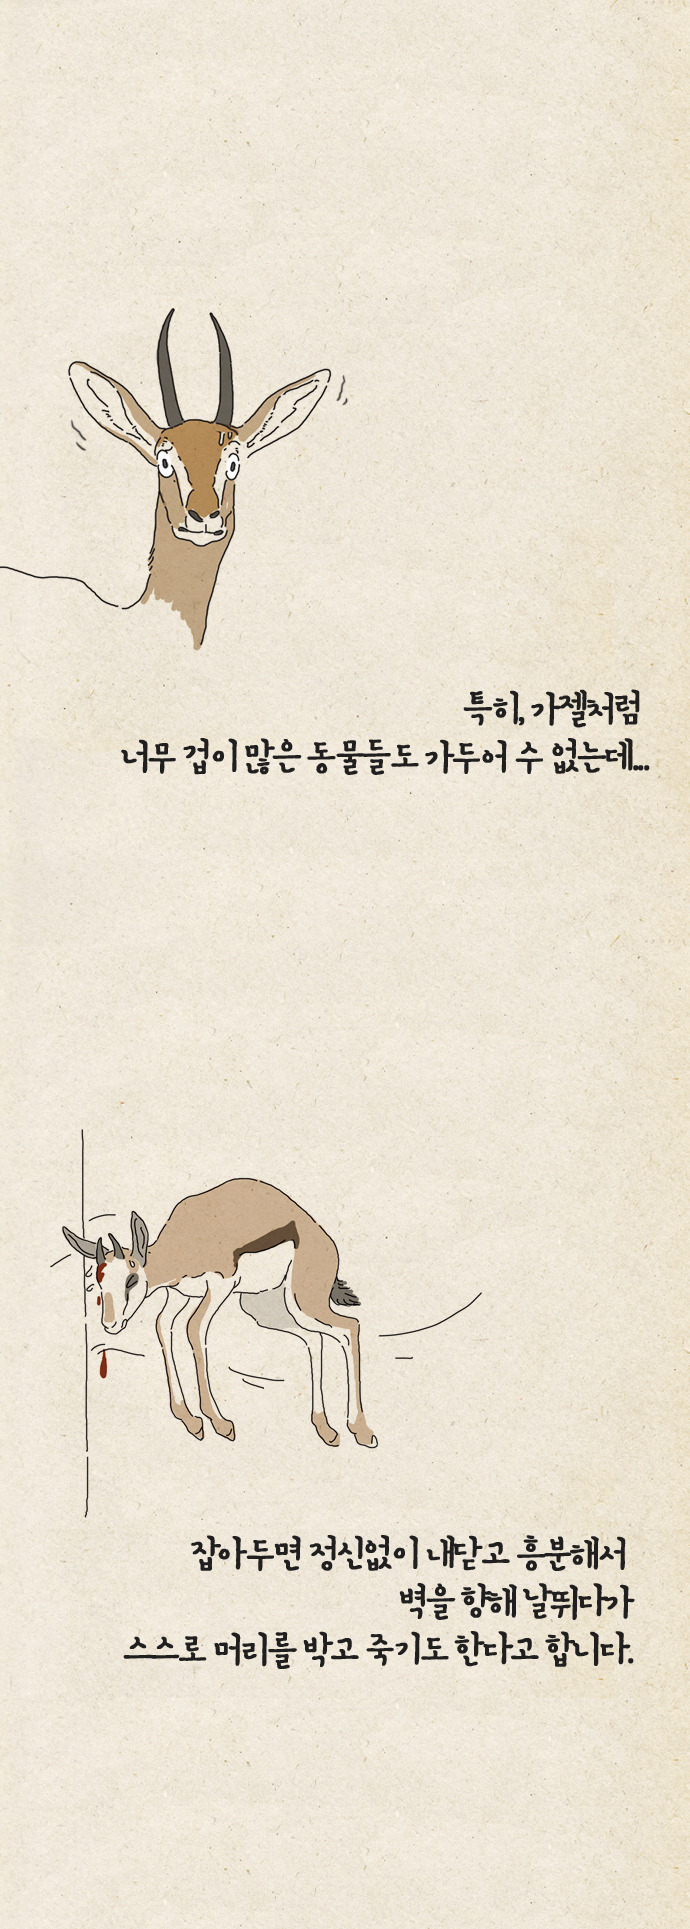 특히, 가젤처럼
너무 겁이 많은 동물들도 가두어 수 없는데...
잡아두면 정신없이 내닫고 흥분해서
벽을 향해 날뛰다가
스스로 머리를 박고 죽기도 한다고 합니다.